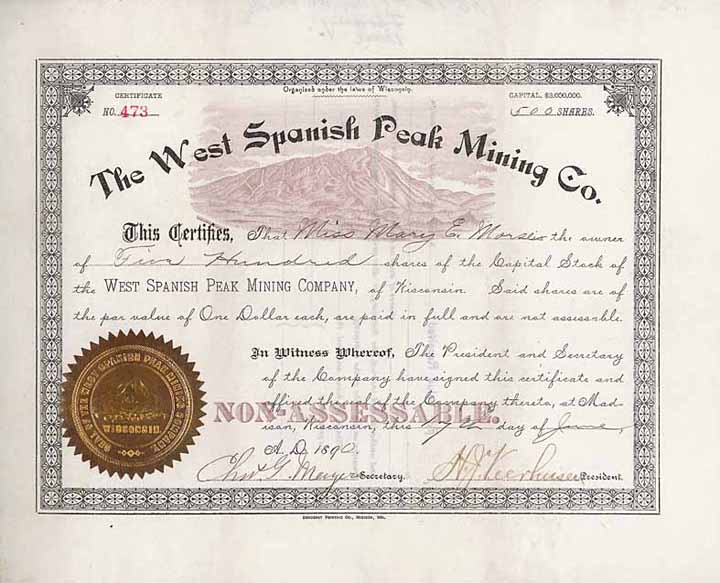 CERTIFICATE
NO. 473
Organized under the laws of Wisconsin.
CAPITAL, $3,000,000.
500 SHARES.
The West Spanish Peak Mining Co.
This Certifies, That Miss Mary E. Morse is the owner
of Five Hundred shares of the Capital Stock of
the WEST SPANISH PEAK MINING COMPANY, of Wisconsin. Said shares are of
the par value of One Dollar each, are paid in full and are not assessable.
In Witness Whereof, The President and Secretary
of the Company have signed this certificate and
affixed the seal of the Company thereto, at Mad-
NON-ASSESSABLE.
ison, Wisconsin, this day of June,
A. D. 1890.
Secretary.
President.
SEAL OF THE WEST SPANISH PEAK MINING COMPANY
WISCONSIN.
DEMOCRAT PRINTING CO., MADISON, WIS.